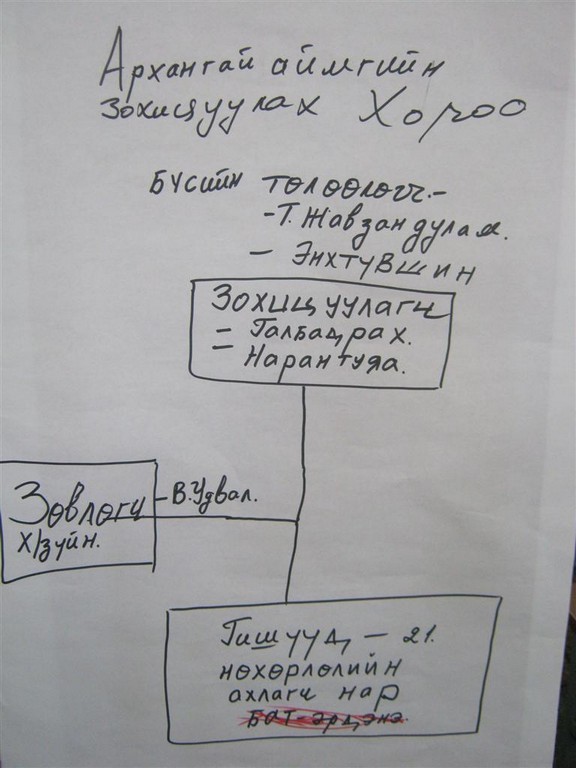 Архангай аймгийн
Зохицуулах Хороо
Бүсийн төлөөлөгч-
-Т.Жавзандулам.
- Энхтүвшин
Зохицуулагч
= Галбадрах.
Нарантуяа.
- В.Удвал.
Зөвлөгч
Х/зүйн.
Гишүүд - 21.
нөхөрлөлийн
ахлагч нар
Бат-эрдэнэ